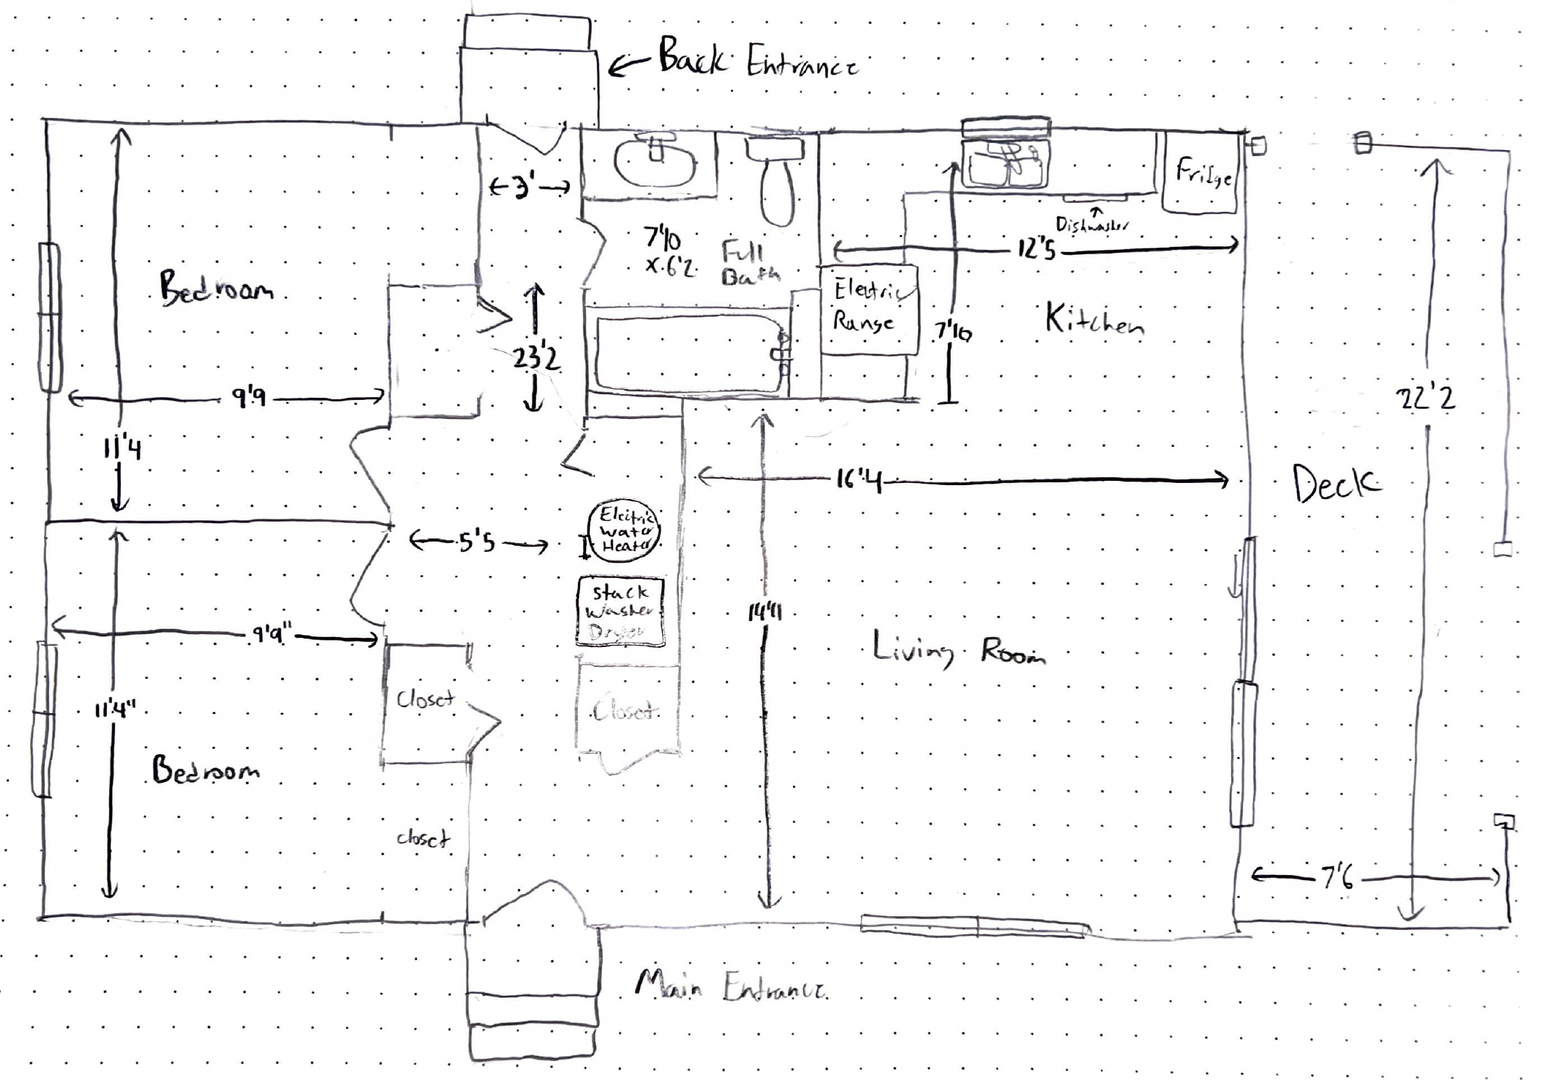 Back Entrance
Fridge
3'
Dishwasher
7'10
x 6'2
Full
Bath
12'5
Bedroom
Electric
Range
7'10
Kitchen
23'2
9'9
22'2
11'4
16'4
Deck
Electric
Water
Heater
5'5
Stack
Washer
Dryer
14'11
9'9"
Living Room
Closet
11'4"
Closet
Bedroom
closet
7'6
Main Entrance